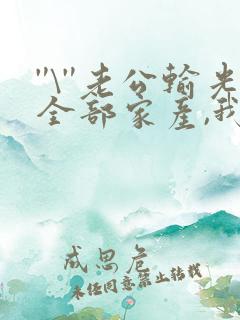 "\"老公输光
全部家产,我
成思危
未经同意禁止转载